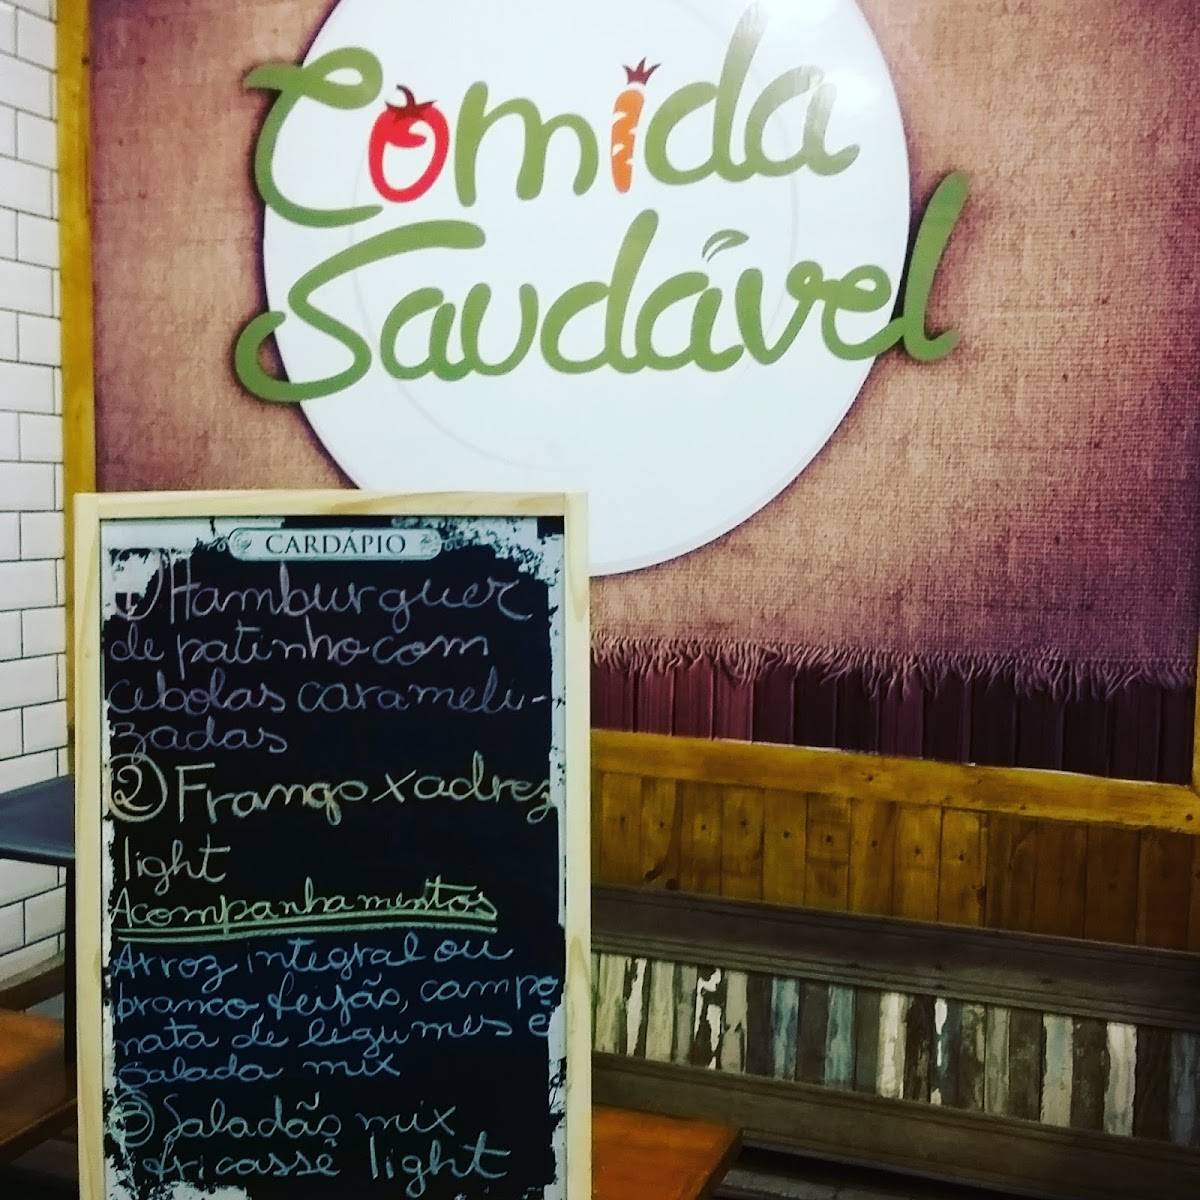 Comida
Saudável
CARDÁPIO
1) Hamburguer
de patinho com
cebolas carameli-
zadas
2) Frango xadrez
light
Acompanhamentos
Arroz integral ou
branco, feijão, campo
nata de legumes e
salada mix
3) Saladão mix
fricassê light